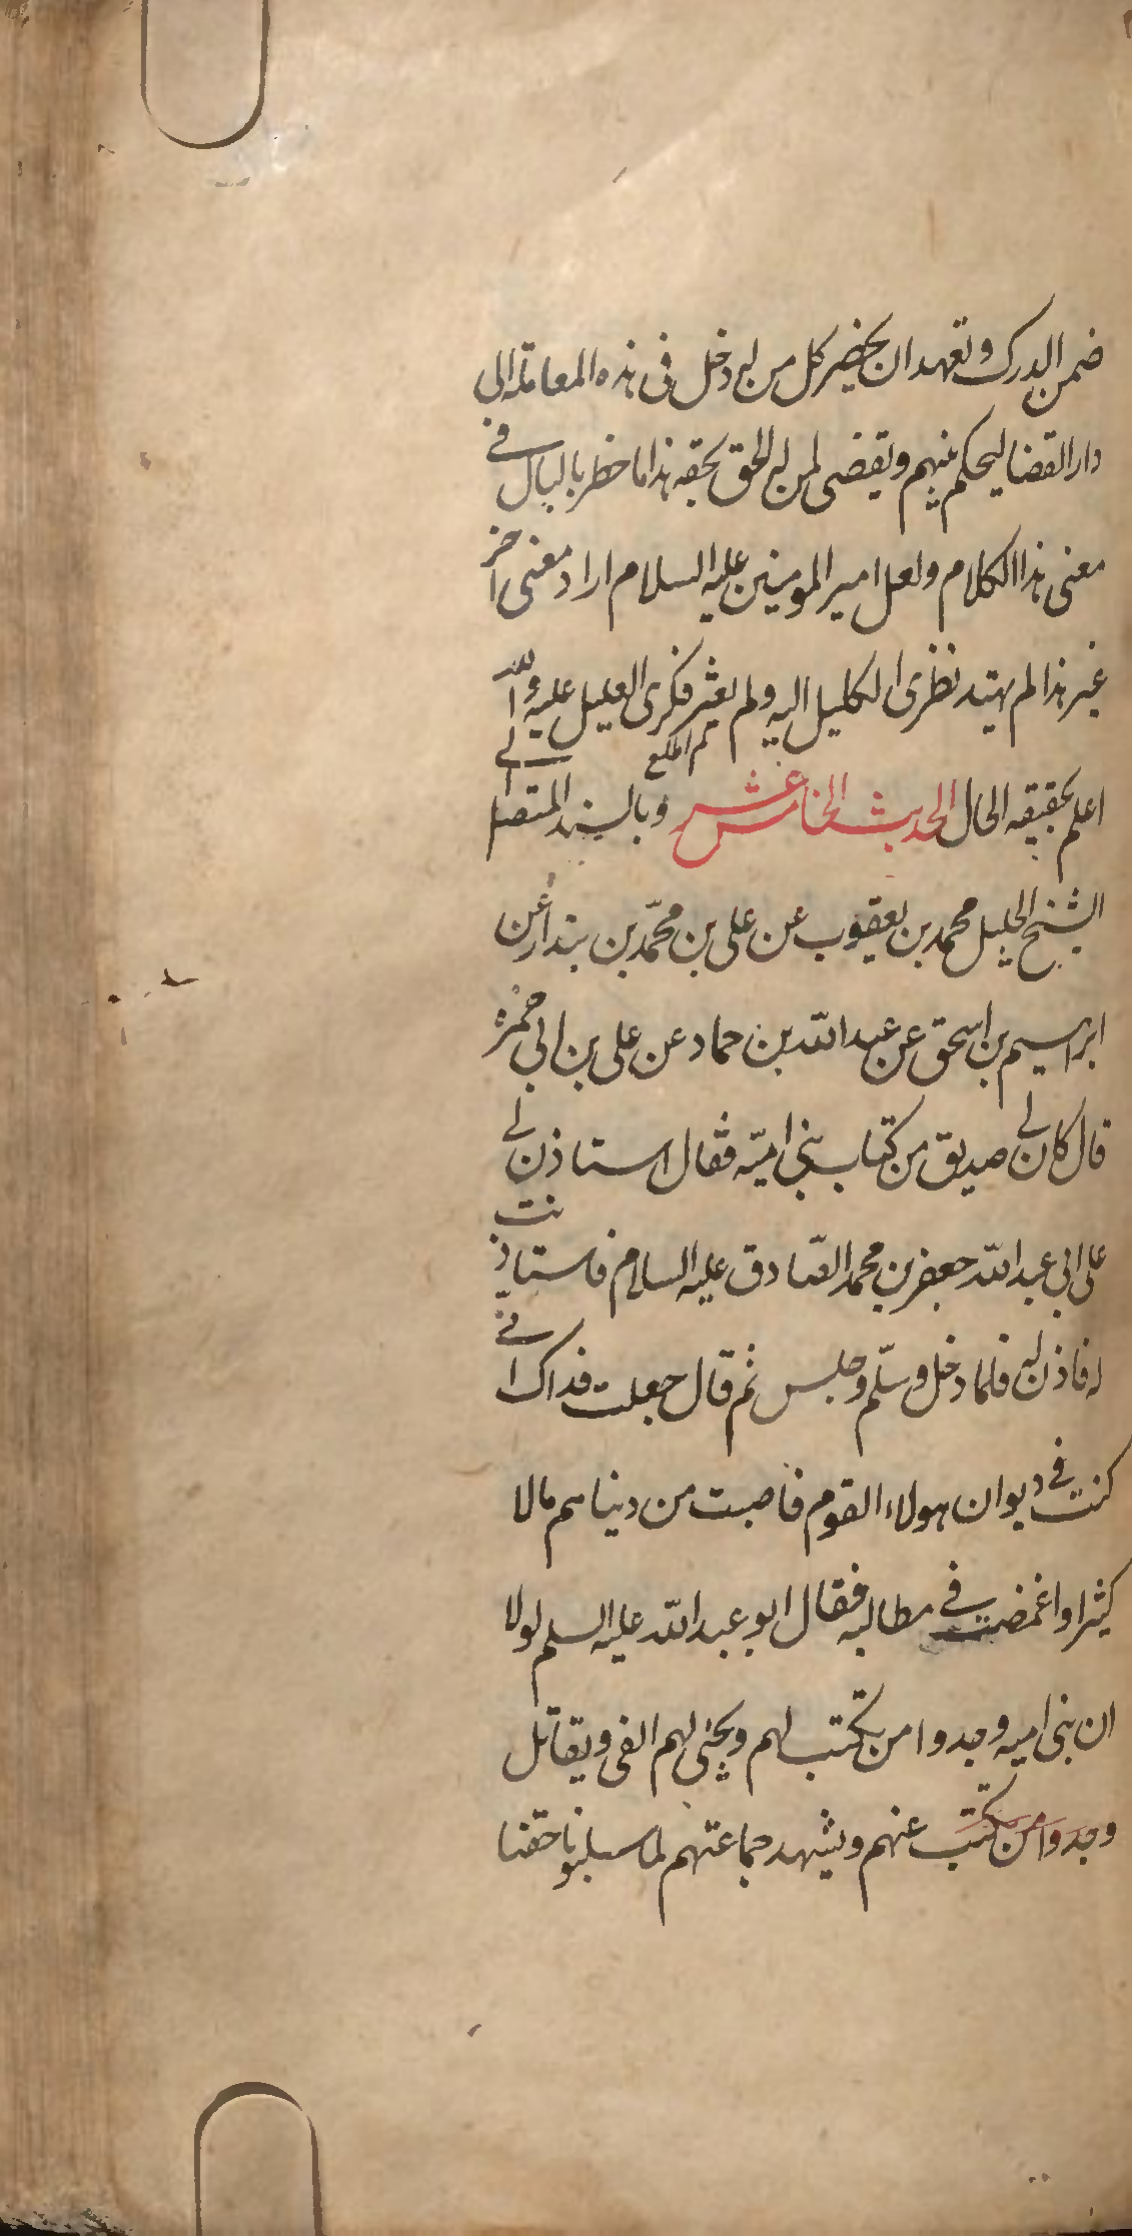 ضمن الدرك وتعهد ان يحضر كل من له دخل فى هذه المعاملة الى
دار القضا ليحكم بينهم ويقضى لمن له الحق بحقه هذا ما خطر بالبال فى
معنى هذا الكلام ولعل امير المومنين عليه السلام اراد معنى اخر
غير هذا لم يهتد نظرى الكليل اليه ولم يعثر فكرى العليل عليه والله
اعلم بحقيقه الحال الحديث الخامس عشر وبالسند المتصل الى
الشيخ الجليل محمد بن يعقوب عن على بن محمّد بن بندار عن
ابراهيم بن اسحق عن عبد الله بن حماد عن على بن ابى حمزه
قال كان لى صديق من كتاب بنى اميّه فقال استاذن لى
على ابى عبد الله جعفر بن محمد الصّادق عليه السلام فاستاذنت
له فاذن له فلما دخل وسلّم وجلس ثم قال جعلت فداك انى
كنت فى ديوان هولاء القوم فاصبت من دنياهم مالا
كثيرا واغمضت فى مطالبه فقال ابو عبد الله عليه السلم لولا
ان بنى اميه وجدوا من يكتب لهم ويجبى لهم الفى ويقاتل
وجدوا من يكتب عنهم ويشهد جماعتهم لما سلبونا حقنا